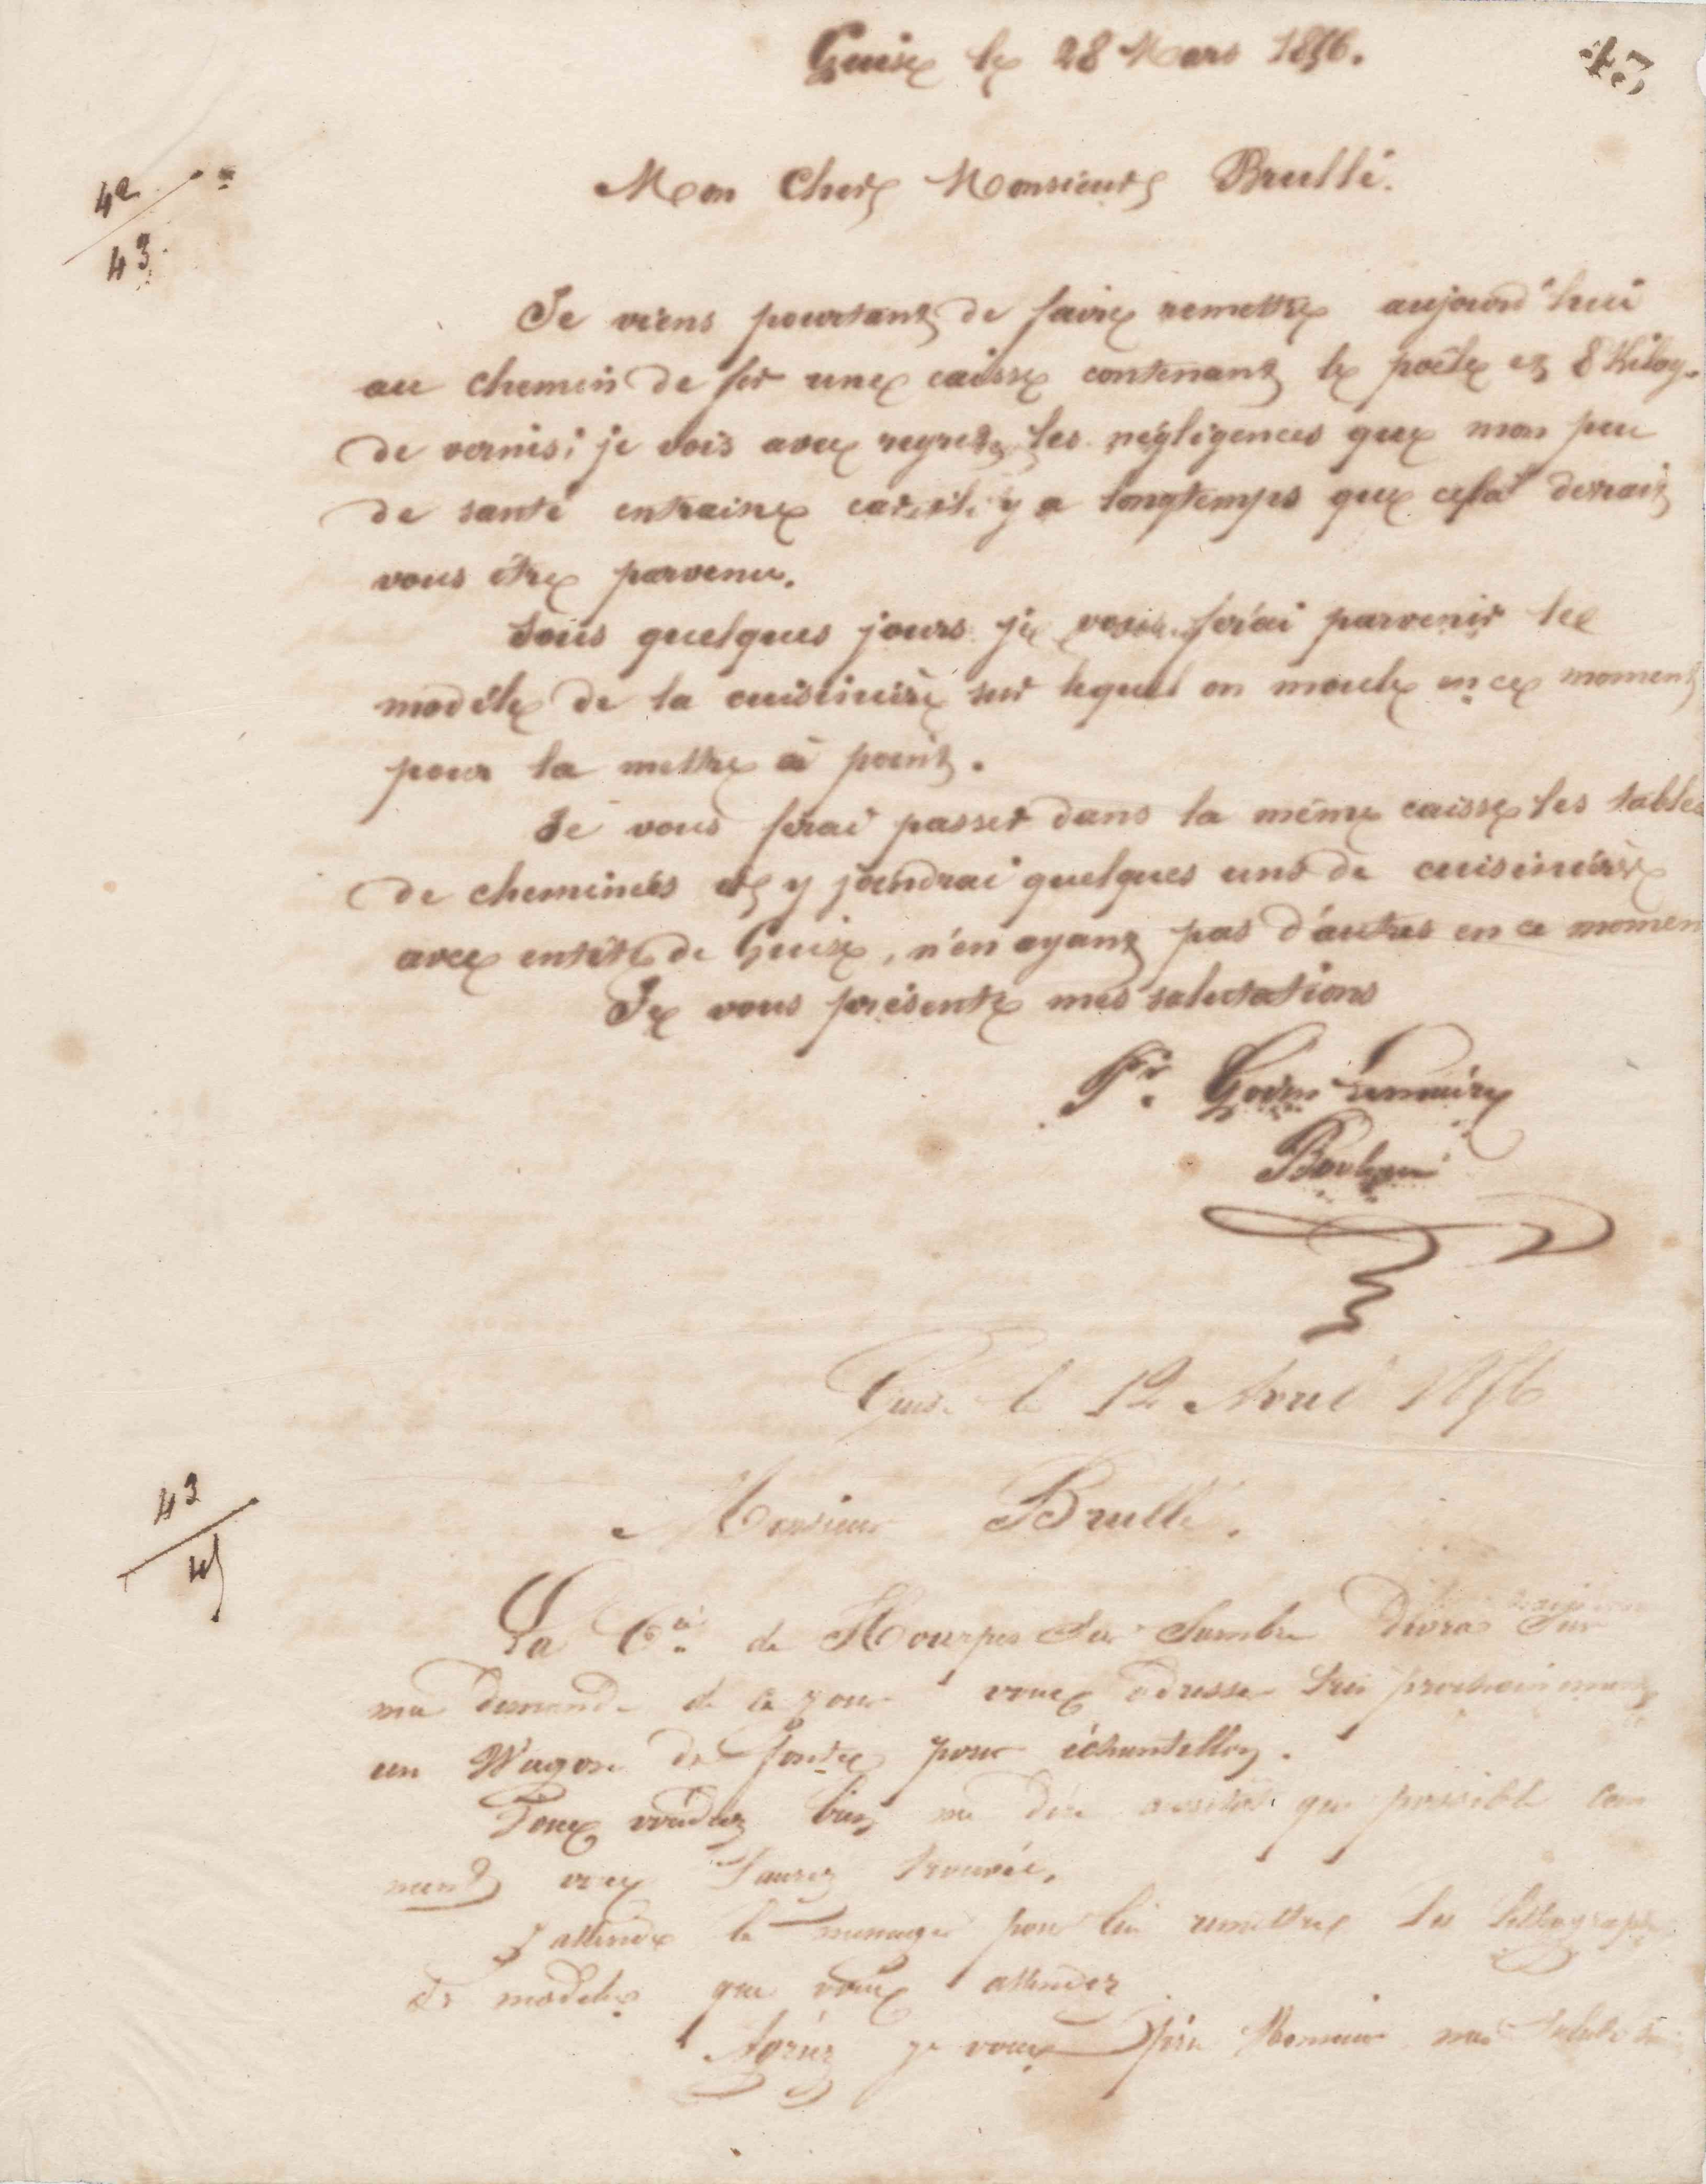 43
Guise le 28 Mars 1856.
42
43
Mon Cher Monsieur Brullé.
Je viens pourtant de faire remettre aujourd'hui
au chemin de fer une caisse contenant le poêle et 8 Kilog.
de vernis; je vois avec regret les négligences que mon peu
de santé entraine car il y a longtemps que cela devrait
vous être parvenu.
Sous quelques jours je vous ferai parvenir le
modèle de la cuisinière sur lequel on moule en ce moment
pour la mettre à point.
Je vous ferai passer dans la même caisse les tables
de cheminées et y joindrai quelques uns de cuisinière
avec entête de Guise, n'en ayant pas d'autres en ce momen
Je vous présente mes salutations
Pr. Godin Lemaire
Guise le 12 Avril 1856
43
45
Monsieur Brullé.
La Cie de Hourpes Sur Sambre devra sur
ma demande de ce jour vous adresser très prochainement
un Wagon de fonte pour échantillon.
Vous voudrez bien me dire aussitôt que possible com
ment vous l'aurez trouvée.
J'attends le messager pour lui remettre les lithographi
de modèles que vous attendez
Agréez je vous prie Monsieur mes salutations